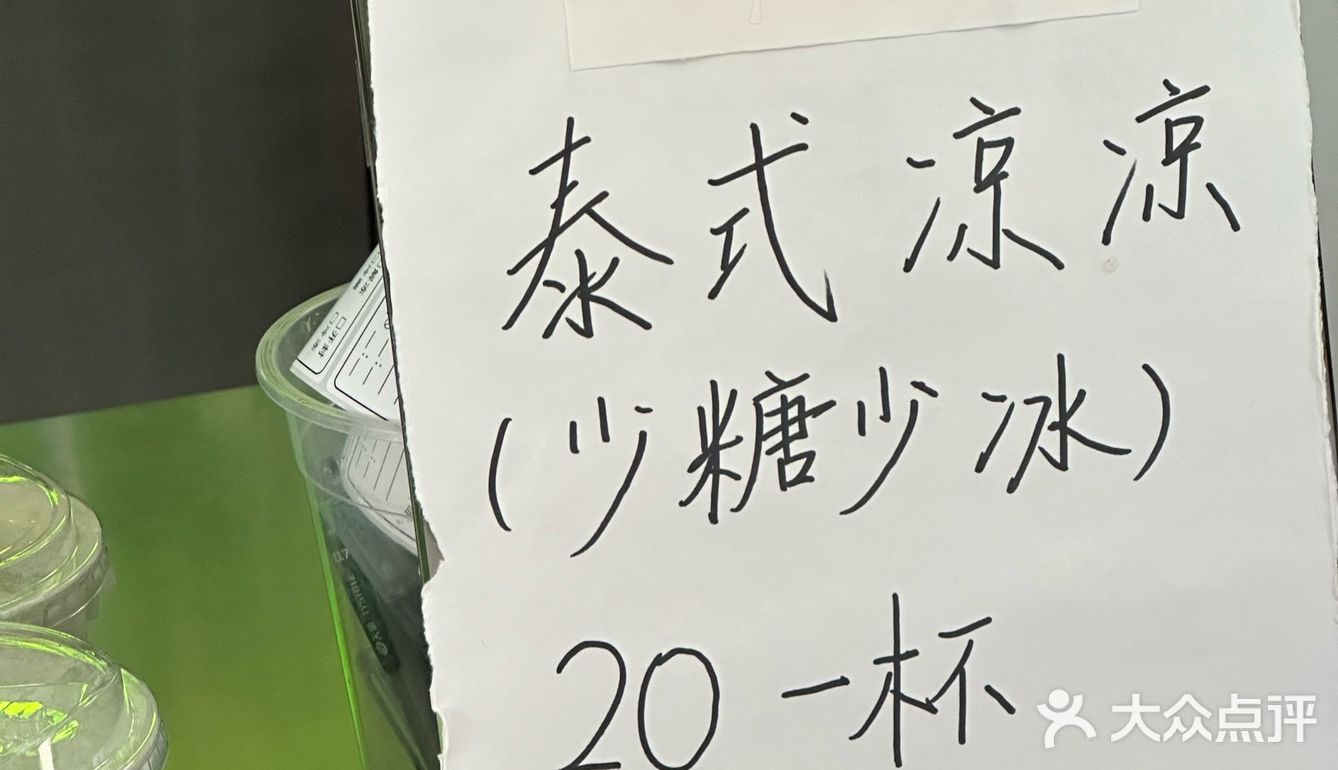 泰式凉凉
(少糖少冰)
20一杯
大众点评